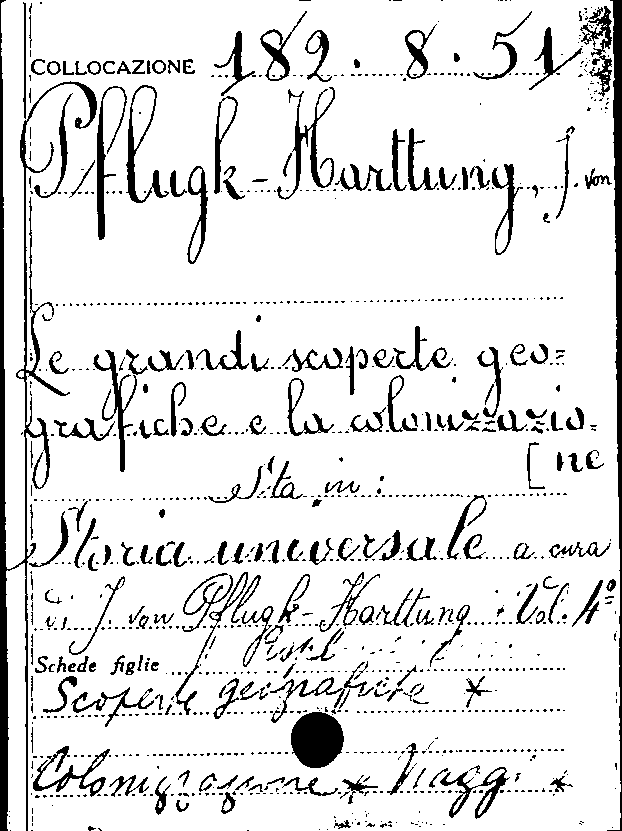 COLLOCAZIONE 182. 8. 51
Pflugk-Harttung, J. von
Le grandi scoperte geo=
grafiche e la colonizzazio=
[ne
Sta in:
Storia universale a cura
di J. von Pflugk-Harttung. Vol. 4º
Schede figlie
Scoperte geografiche *
Colonizzazione * Viaggi *